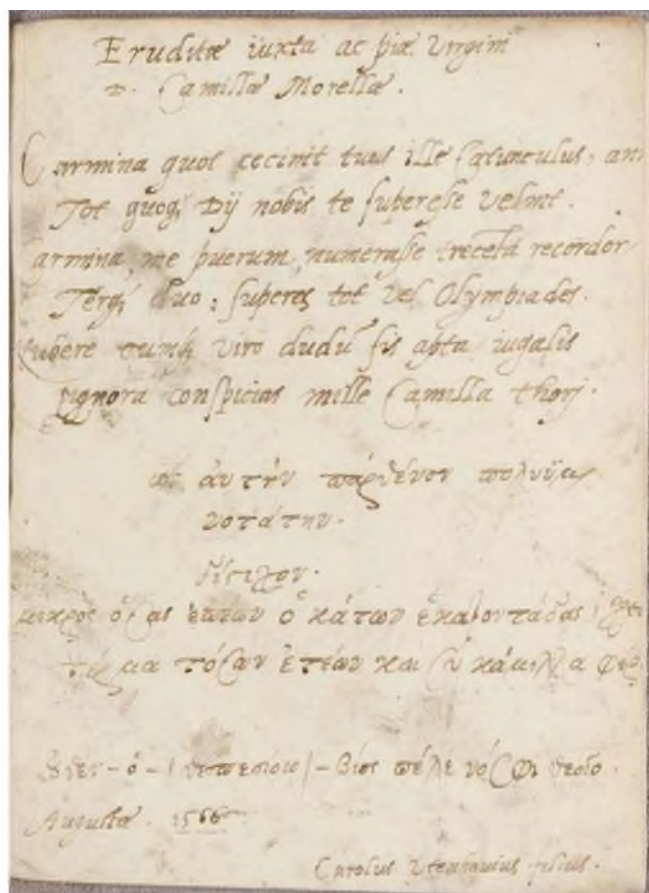 Eruditæ iuxta ac piæ Virgini
D. Camillæ Morellæ.
Carmina quot cecinit tuus ille Catunculus, an
Tot quoq; Dij nobis te superesse velint.
armina, me puerum, numerasse treceta recordor
Terq; duo; superes tot vel Olympiades.
viro dudū sis apta iugalis
pignora conspicias mille Camilla thori.
αὐτὴν παρθένον πολυ
νοτάτην.
δίστιχον.
μικρὸς ἐπέων ὁ κάτων ἑκατοντάδας
τόσσαν ἐτέων καὶ σὺ κάμιλλα
βίος πέλε νόσφι θεοῖο.
Augustæ. 1566
Carolus Utenhovius filius.